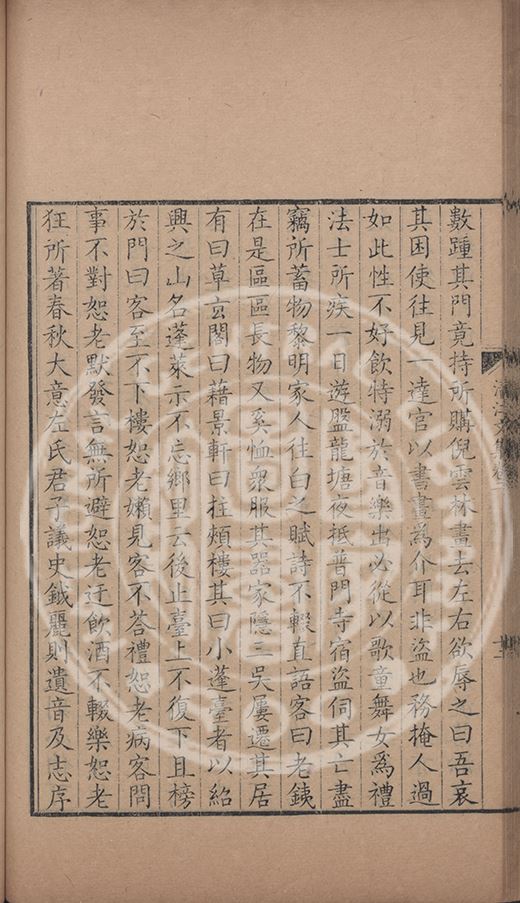 數踵其門竟持所購倪雲林畫去左右欲辱之曰吾哀
其困使往見一達官以書畫為介耳非盜也務掩人過
如此性不好飲特溺於音樂出必從以歌童舞女為禮
法士所疾一日遊盤龍塘夜抵普門寺宿盜伺其亡盡
竊所蓄物黎明家人往白之賦詩不輟直語客曰老鐵
在是區區長物又奚恤衆服其器家隱三吳屢遷其居
有曰草玄閣曰藉景軒曰拄頰樓其曰小蓬臺者以紹
興之山名蓬萊示不忘鄉里云後止臺上不復下且榜
於門曰客至不下樓恕老嬾見客不答禮恕老病客問
事不對恕老默發言無所避恕老迂飲酒不輟樂恕老
狂所著春秋大意左氏君子議史鉞麗則遺音及志序